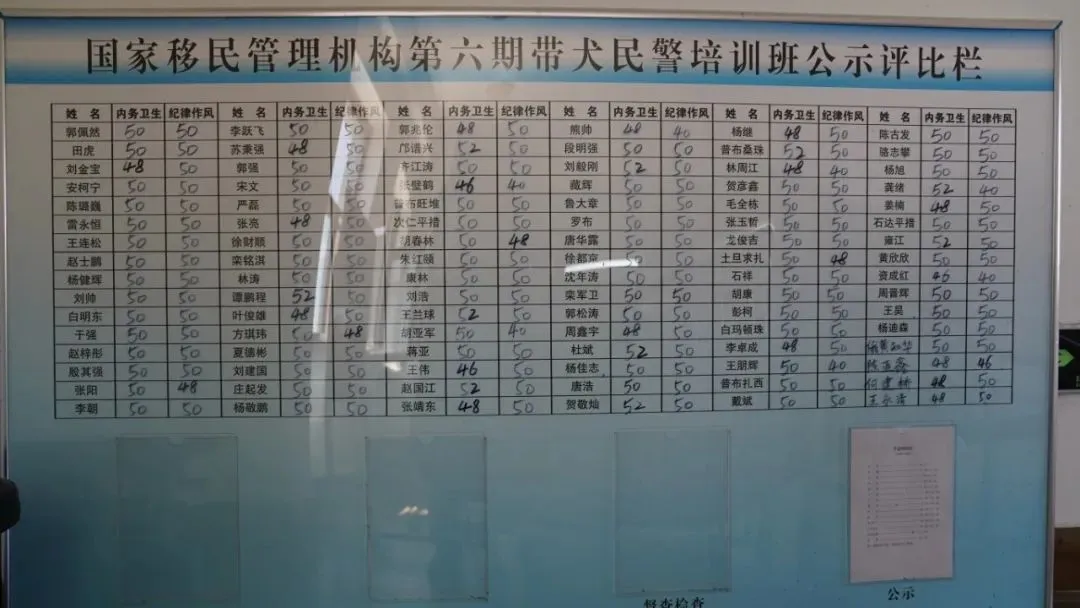 国家移民管理机构第六期带犬民警培训班公示评比栏
姓 名 内务卫生 纪律作风 姓 名 内务卫生 纪律作风 姓 名 内务卫生 纪律作风 姓 名 内务卫生 纪律作风 姓 名 内务卫生 纪律作风 姓 名 内务卫生 纪律作风
郭佩然 50 50 李跃飞 50 50 郭兆伦 48 50 熊帅 48 40 杨继 48 50 陈古发 50 50
田虎 50 50 苏秉强 48 50 邝谱兴 52 50 段明强 50 50 普布桑珠 52 50 骆志攀 50 50
刘金宝 48 50 郭强 50 50 齐江涛 50 50 刘毅刚 52 50 林周江 48 40 杨旭 50 50
安柯宁 50 50 宋文 50 50 张壁鹤 46 40 戴辉 50 50 贺彦鑫 50 50 龚绪 52 40
陈璐巍 50 50 严磊 50 50 普布旺堆 50 50 鲁大章 50 50 毛全栋 50 50 姜楠 48 50
雷永恒 50 50 张亮 48 50 次仁平措 50 50 罗布 50 50 张玉哲 50 50 石达平措 50 50
王连松 50 50 徐财顺 50 50 胡春林 50 48 唐华露 50 50 龙俊吉 50 50 雍江 52 50
赵士鹏 50 50 栾铭淇 50 50 朱红颐 50 50 徐都京 50 50 土旦求扎 50 48 黄欣欣 50 50
杨健辉 50 50 林涛 50 50 康林 50 50 沈年涛 50 50 石祥 50 50 资成红 46 40
刘帅 50 50 谭鹏程 52 50 刘浩 50 50 栾军卫 50 50 胡康 50 50 周晋辉 50 50
白明东 50 50 叶俊雄 48 50 王兰球 52 50 郭松涛 50 50 彭柯 50 50 王昊 50 50
干强 50 50 方琪玮 50 48 胡亚军 50 40 周鑫宇 48 50 白玛顿珠 50 50 杨迪森 50 50
赵梓彤 50 50 夏德彬 50 50 蒋亚 50 50 杜斌 52 50 李卓成 48 50 50 50
殷其强 50 50 刘建国 50 50 王伟 46 50 杨佳志 50 50 王朋辉 50 40 48 46
张阳 50 48 庄起发 50 50 赵国江 52 50 唐浩 50 50 普布扎西 50 50 何建林 48 50
李朝 50 50 杨敬鹏 50 50 张靖东 48 50 贺敬灿 52 50 戴斌 50 50 王永清 48 50
督查检查
公示